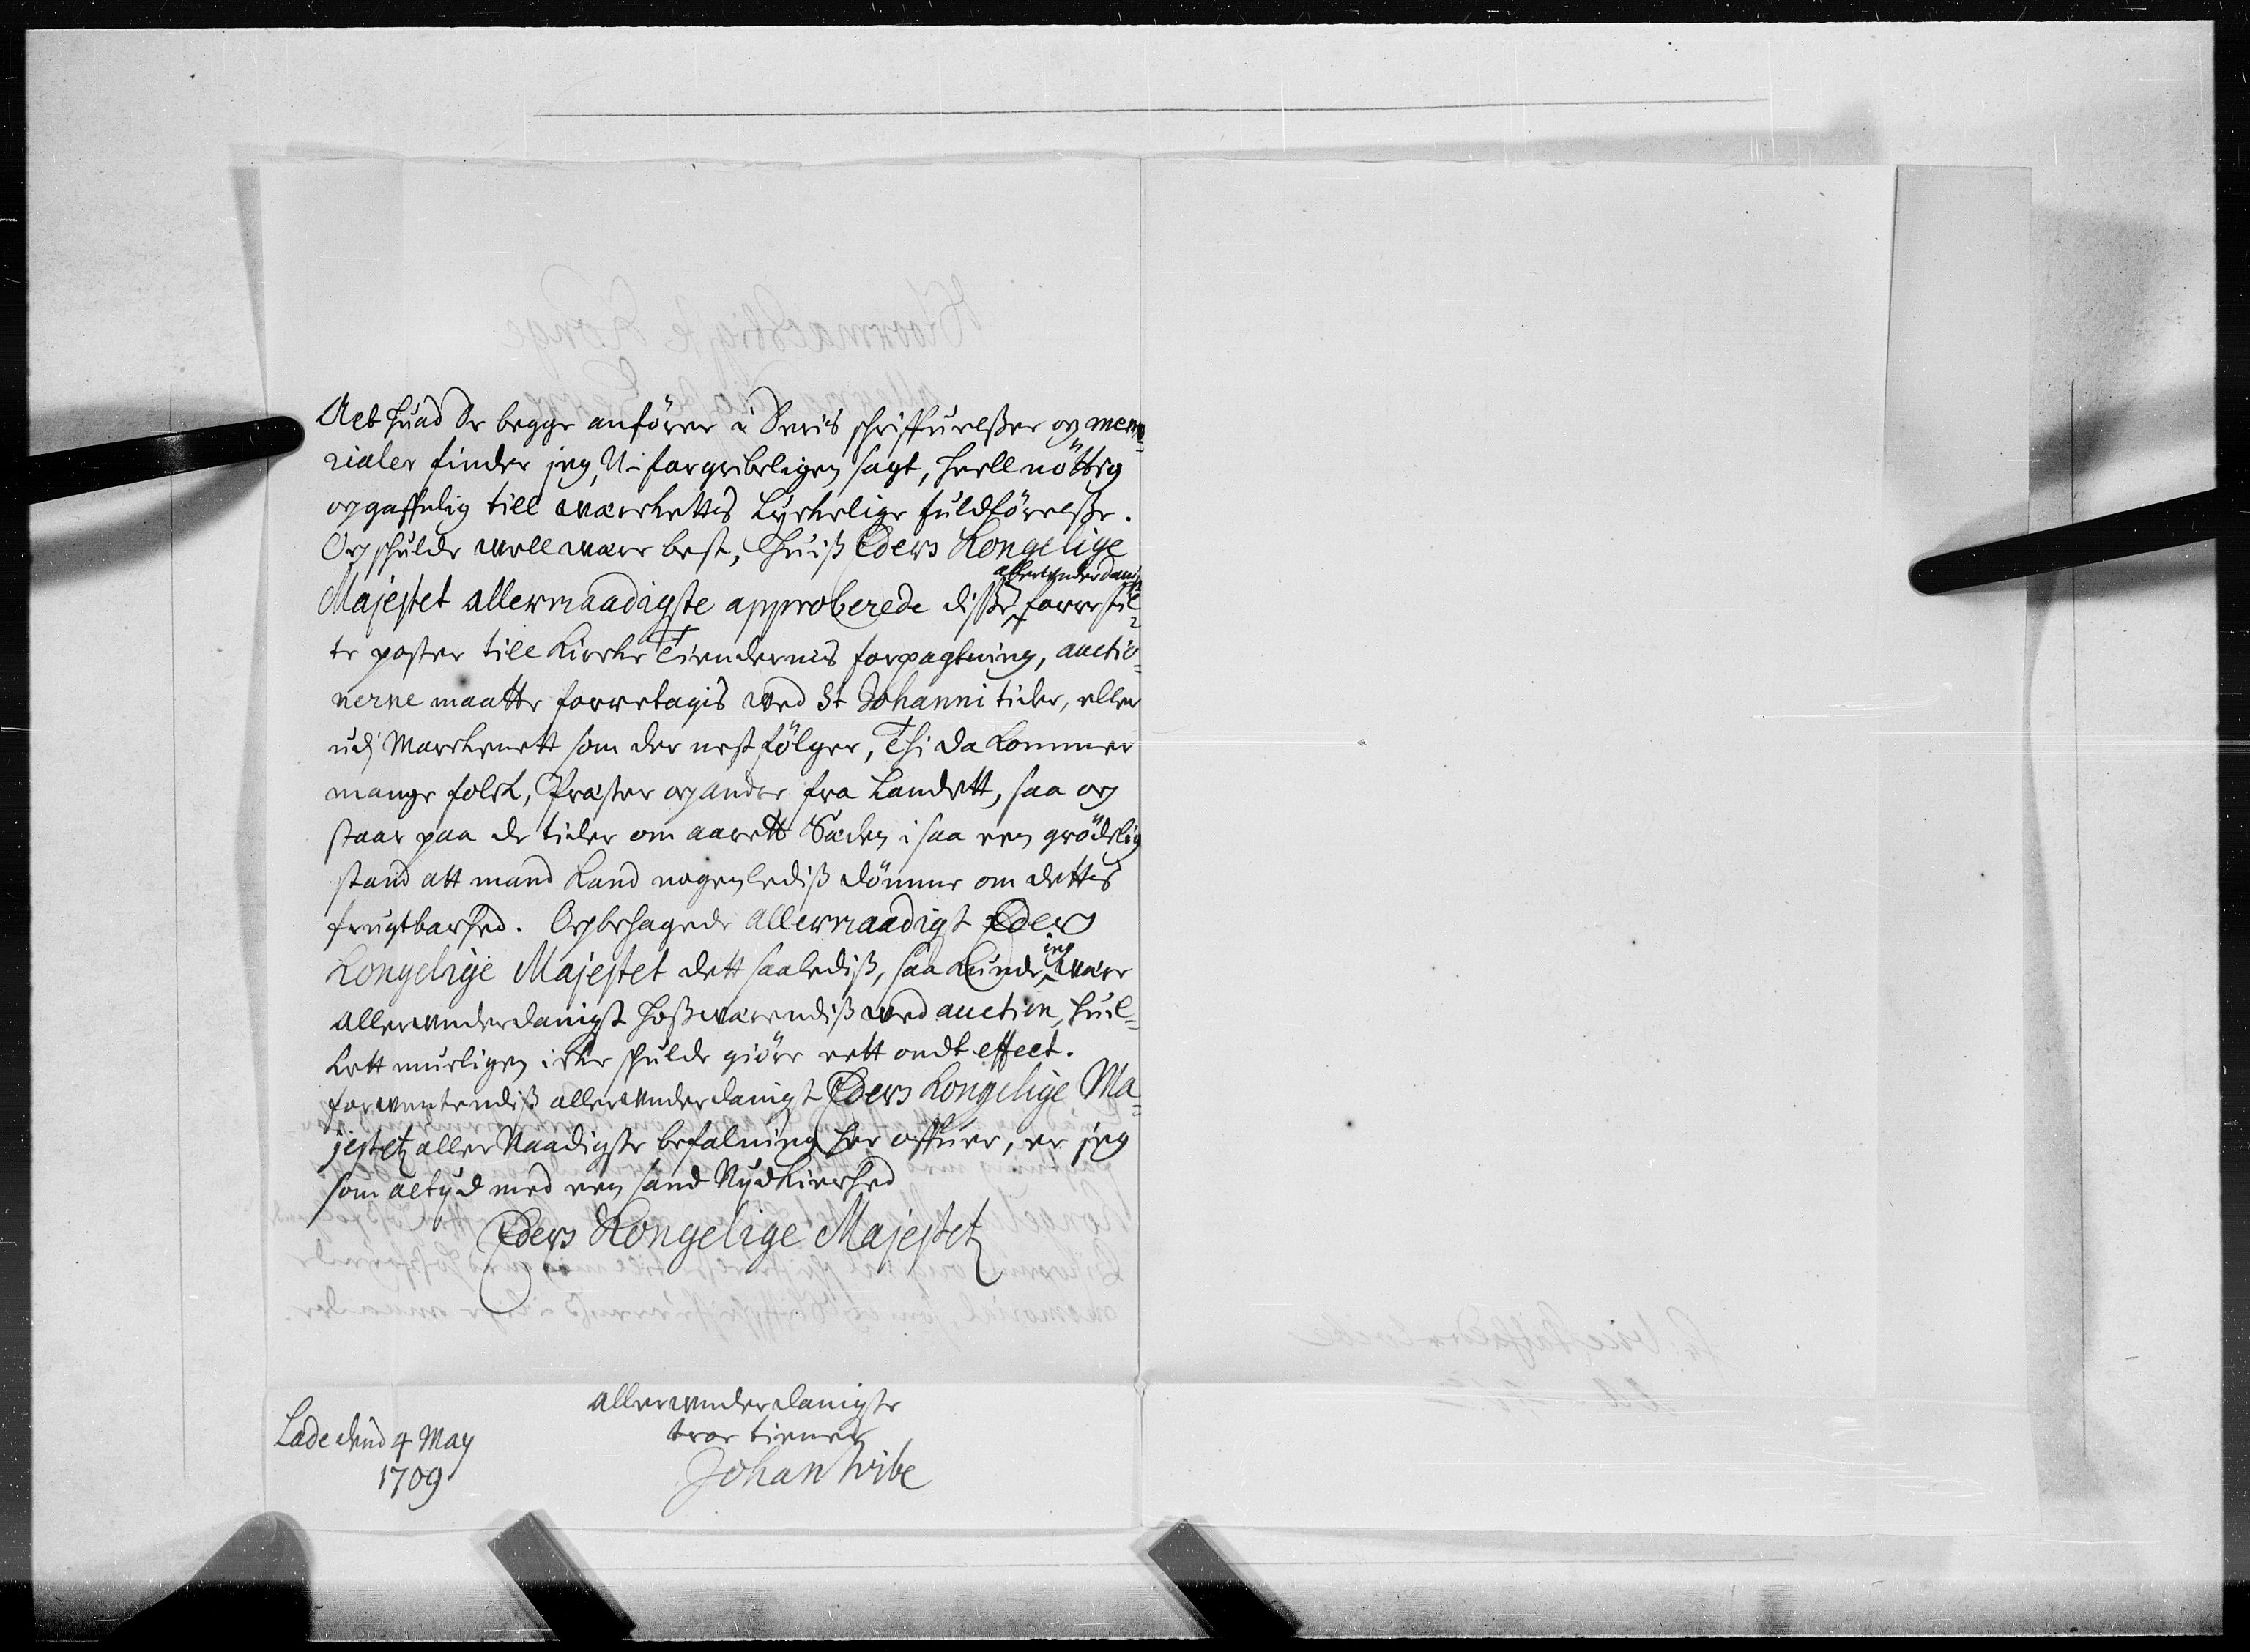 Alt huad De begge anförer i Deris schriffuelßer og memo-
rialer finder jeg, U-forgribeligen sagt, heell nöttig
og gaffnlig till wærkettes Lyckelige fuldförelße.
Og schulde well wære best, huiß Eders Kongelige
Majestet allernaadigste approberede disße allerunderdanigst forrestil-
te poster till Kircke Tiendernis forpagtning, auctio-
nerne maatte forretagis wed St Johanni tider, eller
udj Markenett som der nest fölger, Thi da kommer
mange folck, Præster og andre fra Landett, saa og
staar paa de tider om aarett Sæden i saa een grödelig
stand att mand kand nogenlediß dömme om dettes
frugtbarhed. Og behagede allernaadigst Eders
Kongelige Majestet dett saalediß, saa kunde jeg wære
allerunderdanigst hoßwærendiß wed auction, huil-
kett mueligen icke schulde giöre ett ondt effect.
forwentendiß allerunderdanigst Eders Kongelige Ma-
jestetz aller Naadigste befalning her offuer, er jeg
som altijd med een sand Nydkierhed
Eders Kongelige Majestetz
allerunderdanigste
troe tiener
Johan Wibe
Lade dend 4 May
1709